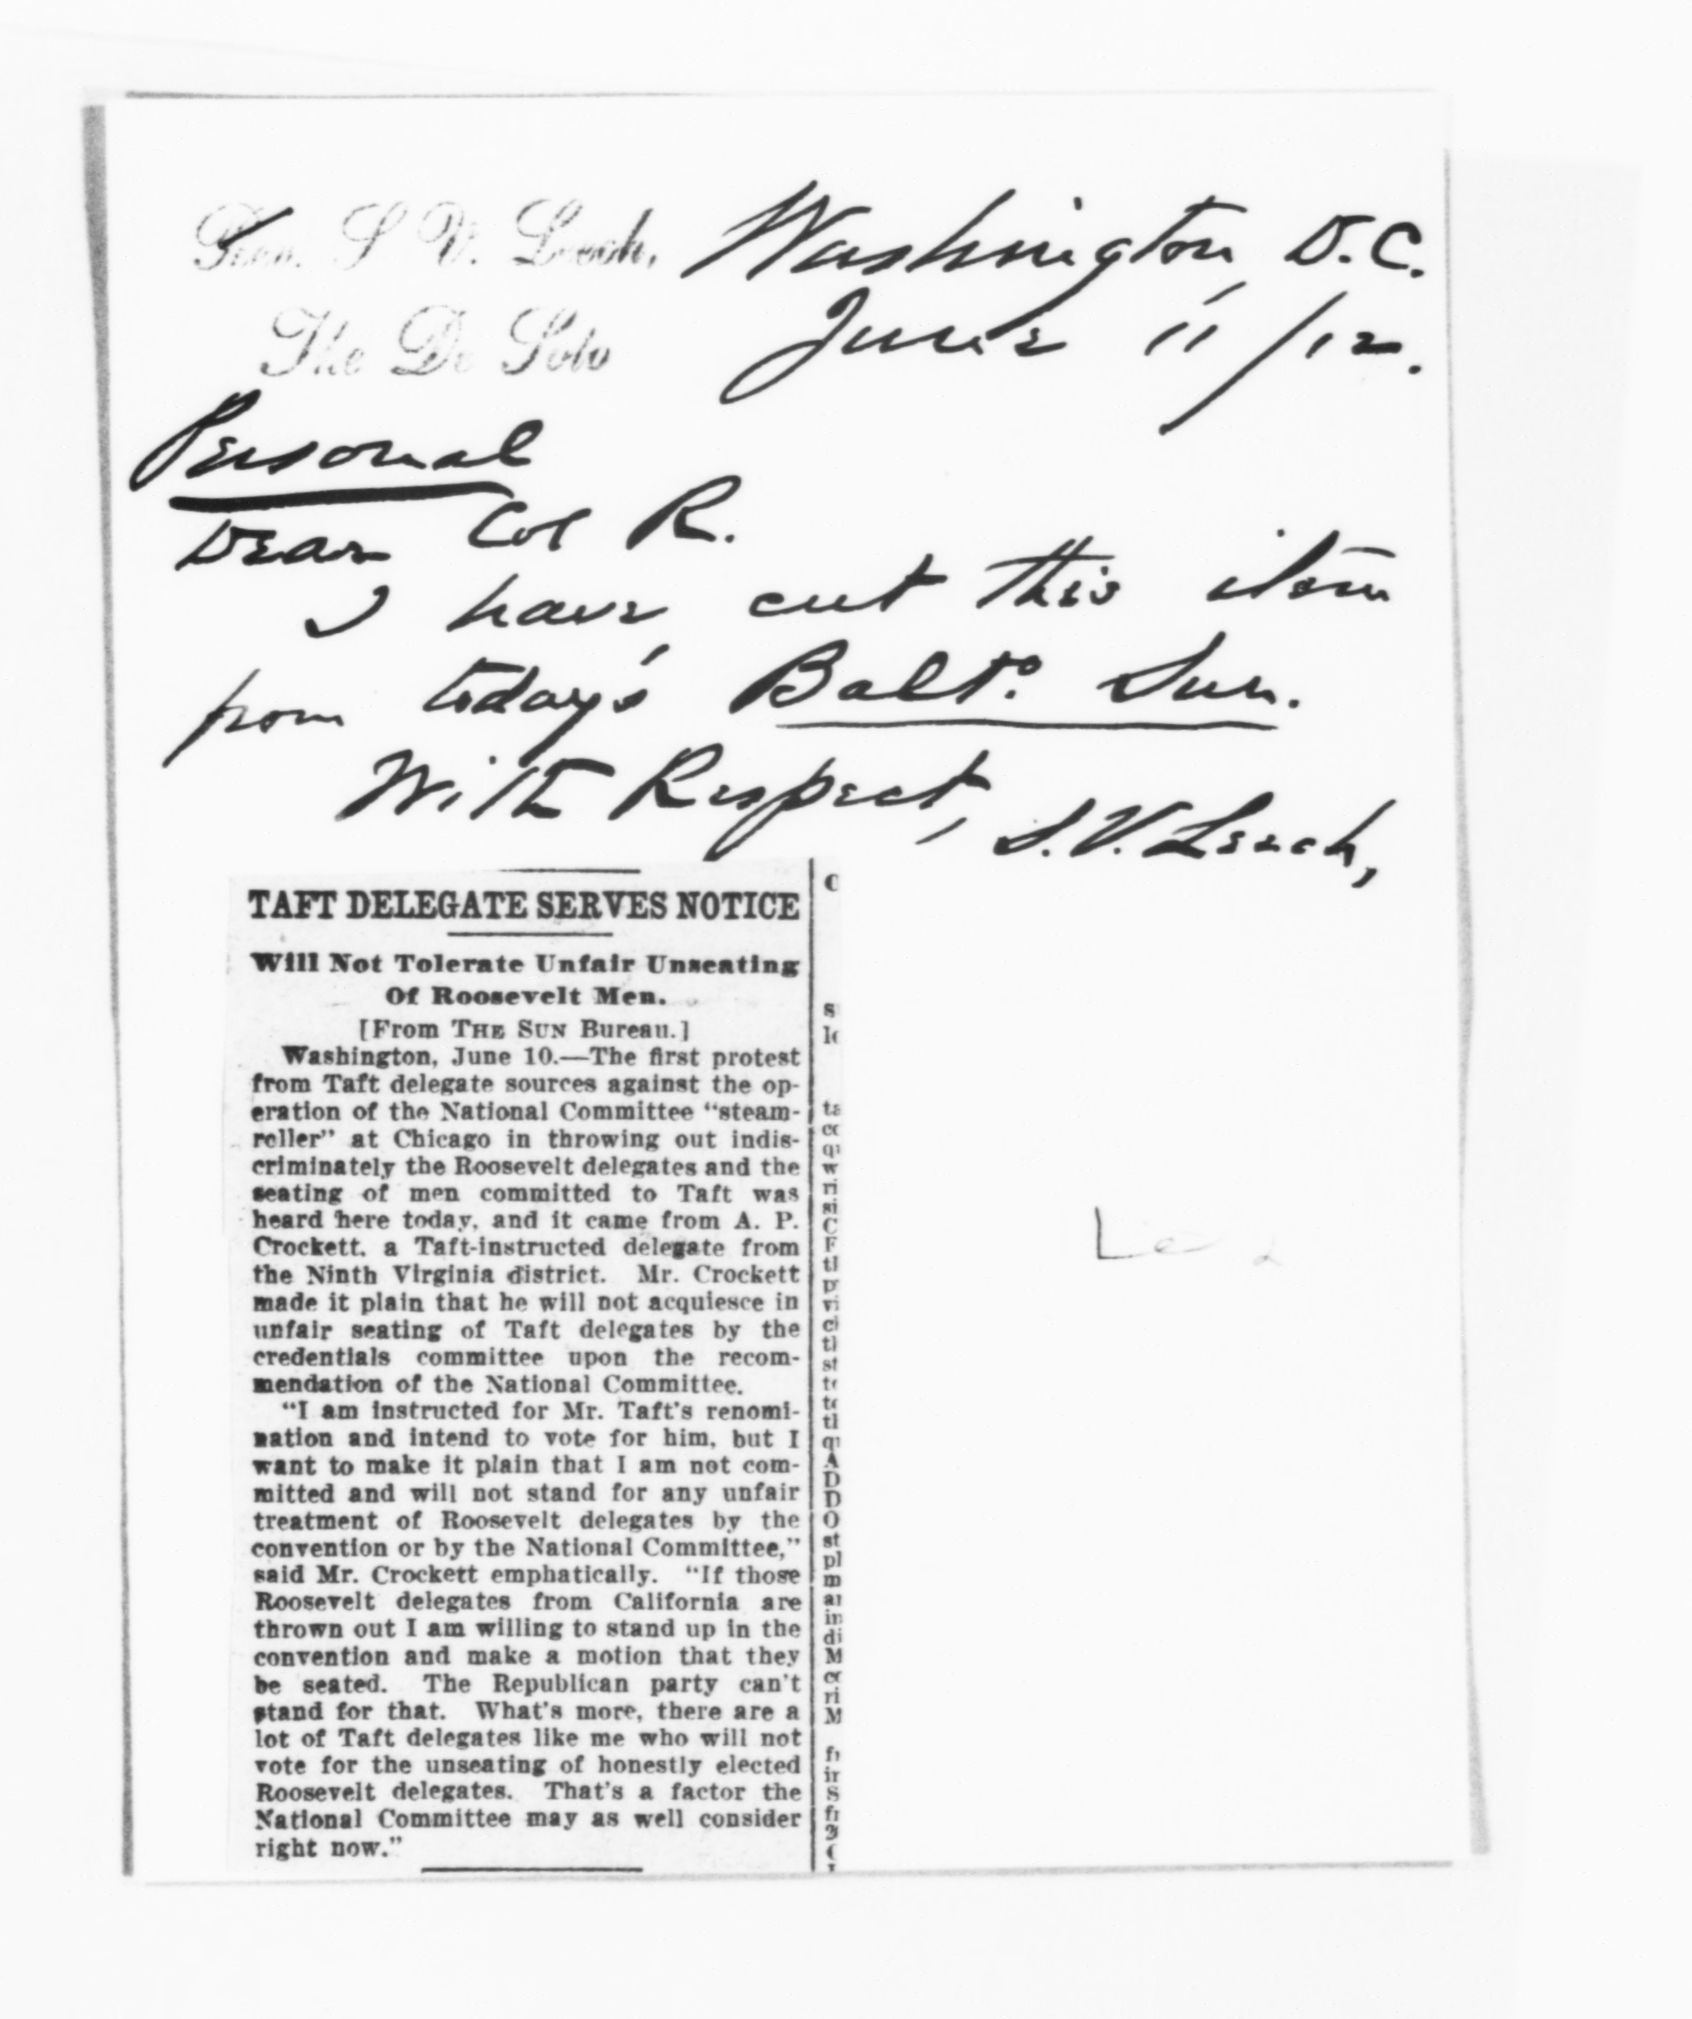 S. V. Leech,
The De Soto
Washington D.C.
June 11/12.
Personal
Dear Col R.
I have cut this item
from today's Balto. Sun.
With Respect,
S. V. Leech,
TAFT DELEGATE SERVES NOTICE
Will Not Tolerate Unfair Unseating
Of Roosevelt Men.
[From THE SUN Bureau.]
Washington, June 10.—The first protest
from Taft delegate sources against the op-
eration of the National Committee "steam-
roller" at Chicago in throwing out indis-
criminately the Roosevelt delegates and the
seating of men committed to Taft was
heard here today, and it came from A. P.
Crockett, a Taft-instructed delegate from
the Ninth Virginia district. Mr. Crockett
made it plain that he will not acquiesce in
unfair seating of Taft delegates by the
credentials committee upon the recom-
mendation of the National Committee.
"I am instructed for Mr. Taft's renomi-
nation and intend to vote for him, but I
want to make it plain that I am not com-
mitted and will not stand for any unfair
treatment of Roosevelt delegates by the
convention or by the National Committee,"
said Mr. Crockett emphatically. "If those
Roosevelt delegates from California are
thrown out I am willing to stand up in the
convention and make a motion that they
be seated. The Republican party can't
stand for that. What's more, there are a
lot of Taft delegates like me who will not
vote for the unseating of honestly elected
Roosevelt delegates. That's a factor the
National Committee may as well consider
right now."